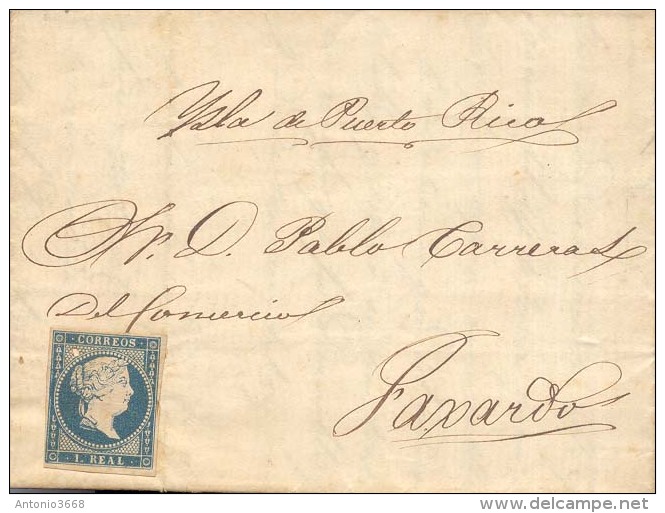 Ysla de Puerto Rico
Sr. D. Pablo Carreras
Del Comercio
CORREOS
1. REAL
Faxardo
Antonio3668
www.delcampe.net